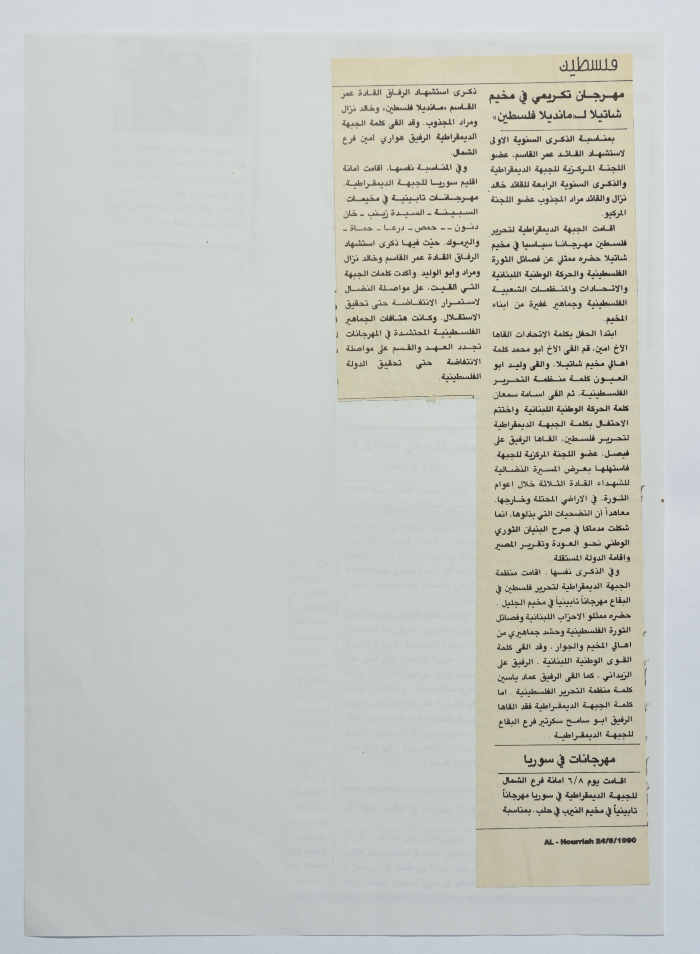 فلسطين
مهرجان تكريمي في مخيم
شاتيلا لـ«مانديلا فلسطين»
بمناسبة الذكرى السنوية الاولى
لاستشهاد القائد عمر القاسم، عضو
اللجنة المركزية للجبهة الديمقراطية
والذكرى السنوية الرابعة للقائد خالد
نزال والقائد مراد المجذوب عضو اللجنة
المركيو
اقامت الجبهة الديمقراطية لتحرير
فلسطين مهرجانا سياسيا في مخيم
شاتيلا حضره ممثلي عن فصائل الثورة
الفلسطينية والحركة الوطنية اللبنانية
والاتحادات والمنظمات الشعبية
الفلسطينية وجماهير غفيرة من ابناء
المخيم.
ابتدا الحفل بكلمة الاتحادات القاها
الأخ امين، ثم القى الأخ ابو محمد كلمة
اهالي مخيم شاتيلا، والقى وليد ابو
العيون كلمة منظمة التحرير
الفلسطينية، ثم القى اسامة سمعان
كلمة الحركة الوطنية اللبنانية، واختتم
الاحتفال بكلمة الجبهة الديمقراطية
لتحرير فلسطين، القاها الرفيق علي
فيصل، عضو اللجنة المركزية للجبهة
فاستهلها بعرض المسيرة النضالية
للشهداء القادة الثلاثة خلال اعوام
الثورة، في الاراضي المحتلة وخارجها،
معاهداً ان التضحيات التي بذلوها، انما
شكلت مدماكا في صرح البنيان الثوري
الوطني نحو العودة وتقرير المصير
واقامة الدولة المستقلة
وفي الذكرى نفسها ، اقامت منظمة
الجبهة الديمقراطية لتحرير فلسطين في
البقاع مهرجاناً تابينياً في مخيم الجليل ،
حضره ممثلو الاحزاب اللبنانية وفصائل
الثورة الفلسطينية وحشد جماهيري من
اهالي المخيم والجوار ، وقد القى كلمة
القوى الوطنية اللبنانية ، الرفيق علي
الزيداني ، كما القى الرفيق عماد ياسين
كلمة منظمة التحرير الفلسطينية . اما
كلمة الجبهة الديمقراطية فقد القاها
الرفيق ابو سامح سكرتير فرع البقاع
للجبهة الديمقراطية .
مهرجانات في سوريا
اقامت يوم ٦/٨ امانة فرع الشمال
للجبهة الديمقراطية في سوريا مهرجاناً
تابينياً في مخيم النيرب في حلب، بمناسبة
AL - Hourriah 24/6/1990
ذكرى استشهاد الرفاق القادة عمر
القاسم «مانديلا فلسطين» وخالد نزال
ومراد المجذوب. وقد القى كلمة الجبهة
الديمقراطية الرفيق هواري امين فرع
الشمال.
وفي المناسبة نفسها، اقامت امانة
اقليم سوريا للجبهة الديمقراطية،
مهرجانات تابينية في مخيمات:
السبينة ـ السيدة زينب ـ خان
دنون ـ حمص ـ درعا ـ حماة ـ
واليرموك. حيّت فيها ذكرى استشهاد
الرفاق القادة عمر القاسم وخالد نزال
ومراد وابو الوليد. واكدت كلمات الجبهة
التي القيت، على مواصلة النضال
لاستمرار الانتفاضة حتى تحقيق
الاستقلال. وكانت هتافات الجماهير
الفلسطينية المحتشدة في المهرجانات
تجدد العهد والقسم على مواصلة
الانتفاضة حتى تحقيق الدولة
الفلسطينية.